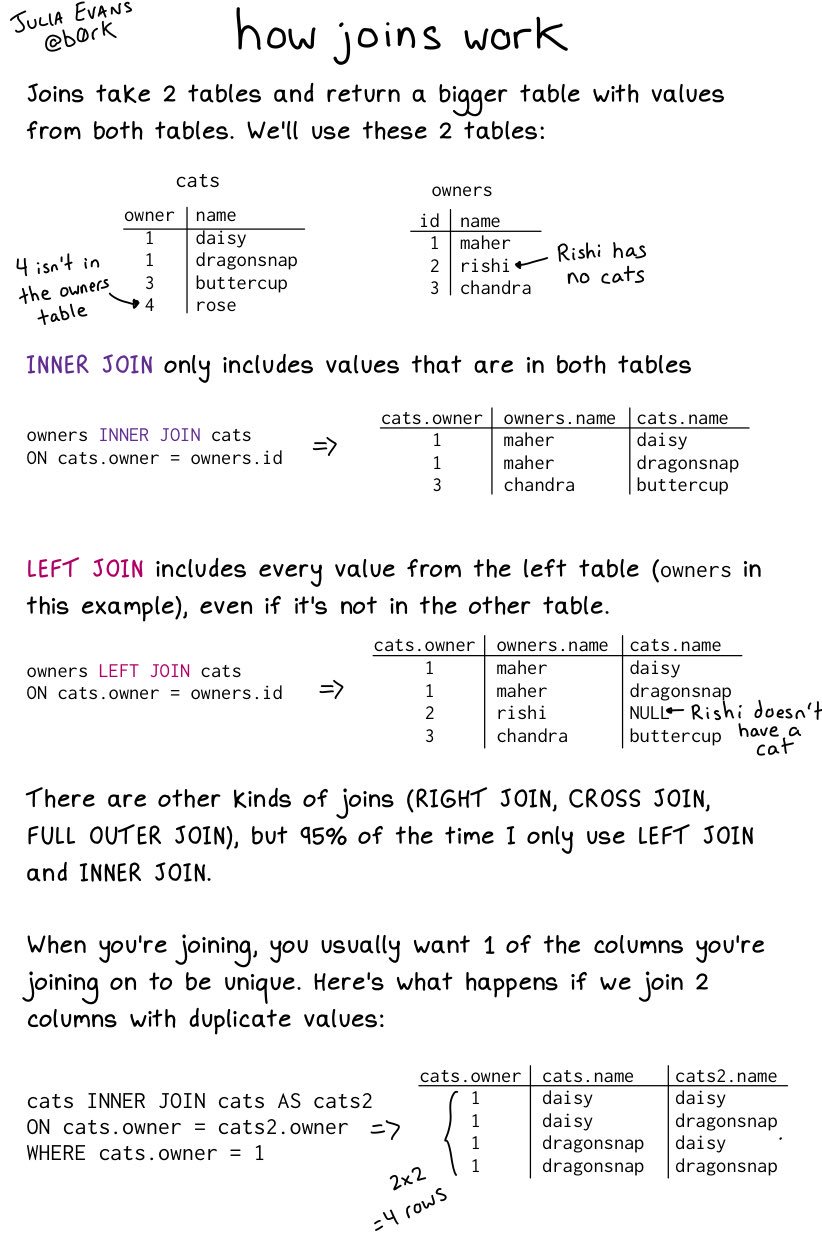 JULIA EVANS
@b0rk
how joins work
Joins take 2 tables and return a bigger table with values
from both tables. We'll use these 2 tables:
cats
owner name
1 daisy
1 dragonsnap
3 buttercup
4 rose
4 isn't in
the owners
table
owners
id name
1 maher
2 rishi
3 chandra
Rishi has
no cats
INNER JOIN only includes values that are in both tables
owners INNER JOIN cats
ON cats.owner = owners.id
=>
cats.owner owners.name cats.name
1 maher daisy
1 maher dragonsnap
3 chandra buttercup
LEFT JOIN includes every value from the left table (owners in
this example), even if it's not in the other table.
owners LEFT JOIN cats
ON cats.owner = owners.id
=>
cats.owner owners.name cats.name
1 maher daisy
1 maher dragonsnap
2 rishi NULL
3 chandra buttercup
Rishi doesn't
have a
cat
There are other kinds of joins (RIGHT JOIN, CROSS JOIN,
FULL OUTER JOIN), but 95% of the time I only use LEFT JOIN
and INNER JOIN.
When you're joining, you usually want 1 of the columns you're
joining on to be unique. Here's what happens if we join 2
columns with duplicate values:
cats INNER JOIN cats AS cats2
ON cats.owner = cats2.owner
WHERE cats.owner = 1
=>
cats.owner cats.name cats2.name
1 daisy daisy
1 daisy dragonsnap
1 dragonsnap daisy
1 dragonsnap dragonsnap
2x2
=4 rows